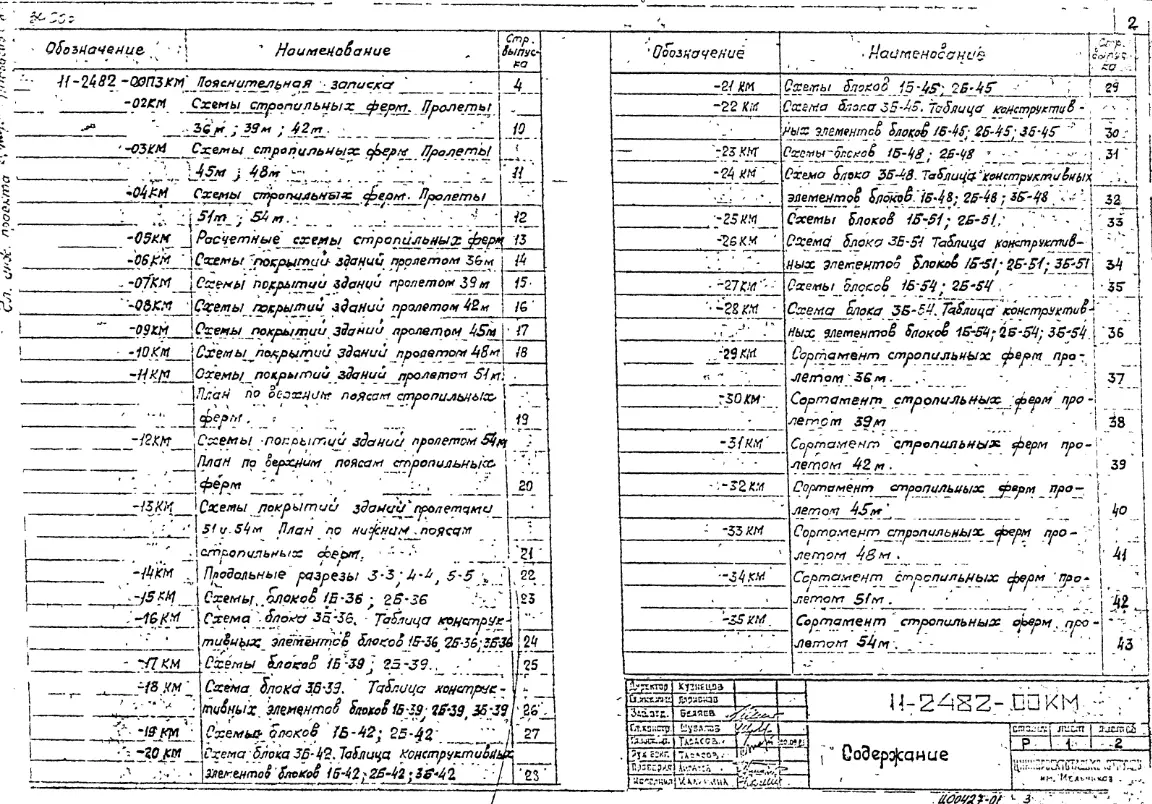 2
Обозначение Наименование Стр. выпуска
11-2482-00ПЗКМ Пояснительная записка 4
-02КМ Схемы стропильных ферм. Пролеты
36м; 39м; 42м. 10
-03КМ Схемы стропильных ферм Пролеты
45м; 48м 11
-04КМ Схемы стропильных ферм. Пролеты
51м; 54м. 12
-05КМ Расчетные схемы стропильных ферм 13
-06КМ Схемы покрытий зданий пролетом 36м 14
-07КМ Схемы покрытий зданий пролетом 39м 15
-08КМ Схемы покрытий зданий пролетом 42м 16
-09КМ Схемы покрытий зданий пролетом 45м 17
-10КМ Схемы покрытий зданий пролетом 48м 18
-11КМ Схемы покрытий зданий пролетом 51м.
План по верхним поясам стропильных
ферм. 19
-12КМ Схемы покрытий зданий пролетом 54м
План по верхним поясам стропильных
ферм 20
-13КМ Схемы покрытий зданий пролетами
51 и 54м План по нижним поясам
стропильных ферм. 21
-14КМ Продольные разрезы 3-3; 4-4, 5-5 22
-15КМ Схемы блоков 1Б-36; 2Б-36 23
-16КМ Схема блока 3Б-36. Таблица конструк-
тивных элементов блоков 1Б-36, 2Б-36; 3Б-36 24
-17КМ Схемы блоков 1Б-39; 2Б-39. 25
-18КМ Схема блока 3Б-39. Таблица конструк-
тивных элементов блоков 1Б-39; 2Б-39, 3Б-39 26
-19КМ Схемы блоков 1Б-42; 2Б-42 27
-20КМ Схема блока 3Б-42. Таблица конструктивных
элементов блоков 1Б-42; 2Б-42; 3Б-42 28
Обозначение Наименование Стр. выпуска
-21КМ Схемы блоков 1Б-45; 2Б-45 29
-22КМ Схема блока 3Б-45. Таблица конструктив-
ных элементов блоков 1Б-45; 2Б-45; 3Б-45 30
-23КМ Схемы блоков 1Б-48; 2Б-48 31
-24КМ Схема блока 3Б-48. Таблица конструктивных
элементов блоков. 1Б-48; 2Б-48; 3Б-48 32
-25КМ Схемы блоков 1Б-51; 2Б-51. 33
-26КМ Схема блока 3Б-51 Таблица конструктив-
ных элементов блоков 1Б-51; 2Б-51; 3Б-51 34
-27КМ Схемы блоков 1Б-54; 2Б-54 35
-28КМ Схема блока 3Б-54. Таблица конструктив-
ных элементов блоков 1Б-54; 2Б-54; 3Б-54 36
-29КМ Сортамент стропильных ферм про-
летом 36м. 37
-30КМ Сортамент стропильных ферм про-
летом 39м 38
-31КМ Сортамент стропильных ферм про-
летом 42м. 39
-32КМ Сортамент стропильных ферм про-
летом 45м 40
-33КМ Сортамент стропильных ферм про-
летом 48м. 41
-34КМ Сортамент стропильных ферм про-
летом 51м. 42
-35КМ Сортамент стропильных ферм про-
летом 54м. 43
Директор Кузнецов
Зав.отд. Беляев
Гл.констр. Шувалов
Тарасов
11-2482-00КМ
Содержание
стадия лист листов
Р 1 2
им. Мельникова
Ц00427-01 3